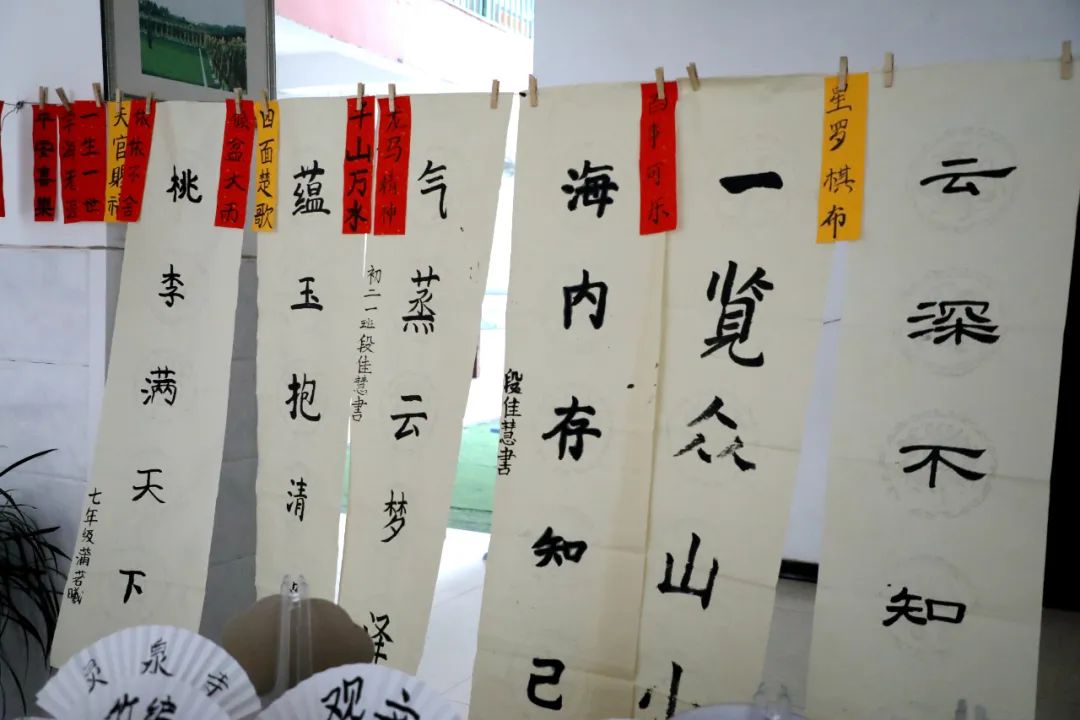 平安喜樂
一生一世
天官賜福
依依不舍
桃李满天下
七年级蒲若曦
倾盆大雨
四面楚歌
蕴玉抱清
千山万水
龙马精神
初二一班段佳慧書
气蒸云梦泽
段佳慧書
海内存知己
一览众山小
星罗棋布
云深不知
灵泉寺